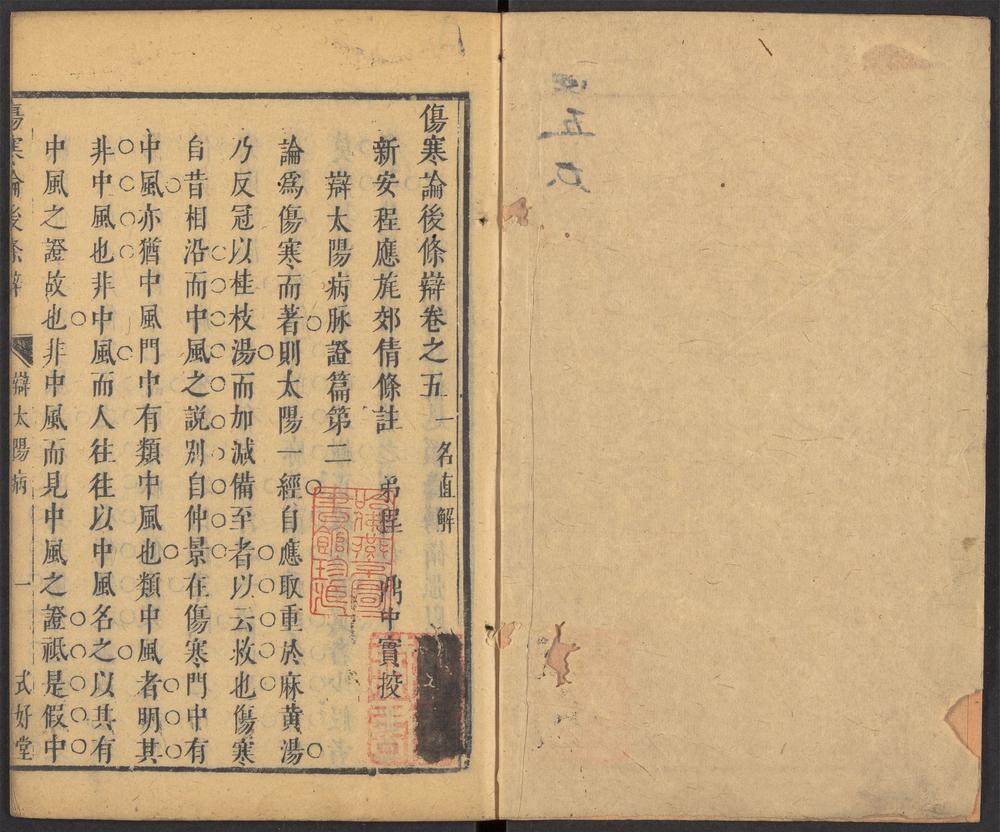 傷寒論後條辯卷之五 一名直解
新安程應旄郊倩條註 弟程 鼎中實挍
辯太陽病脉證篇第二
論爲傷寒而著則太陽一經自應取重於麻黄湯
乃反冠以桂枝湯而加減備至者以云救也傷寒
自昔相沿而中風之説別自仲景在傷寒門中有
中風亦猶中風門中有類中風也類中風者明其
非中風也非中風而人往往以中風名之以其有
中風之證故也非中風而見中風之證祗是假中
傷寒論後條辯 辯太陽病 一 式好堂
五